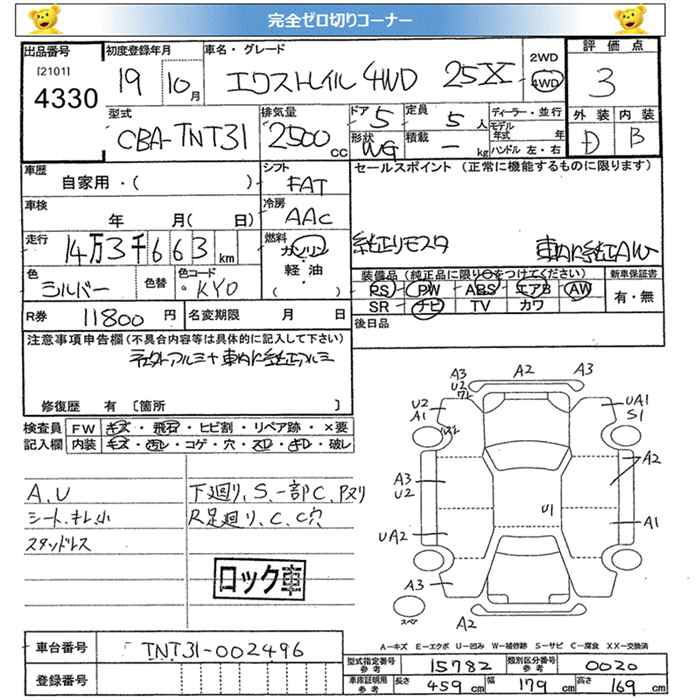 完全ゼロ切りコーナー
出品番号 初度登録年月 車名・グレード 評価点
[2101] 4330 19 10月 エクストレイル 4WD 25X 2WD 4WD 3
型式 排気量 ドア 5 定員 5人 ディーラー・並行 外装 内装
CBA-TNT31 2500cc 形状 WG 積載 - kg モデル年式 年 D B
ハンドル 左・右
車歴 シフト セールスポイント (正常に機能するものに限ります)
自家用・( ) FAT
車検 冷房
年 月( 日) AAC
走行 14万3千663km 燃料 ガソリン 純正リモスタ 車内に純正AW
軽・油
( )
色 色替 色コード 装備品 (純正品に限り○をつけてください) 新車保証書
シルバー KY0 PS PW ABS エアB AW 有・無
SR ナビ TV カワ
R券 11800円 名変期限 月 日 後日品
注意事項申告欄 (不具合内容等は具体的に記入して下さい)
社外アルミ+車内に純正アルミ
修復歴 有 [箇所 ]
検査員 FW キズ・飛石・ヒビ割・リペア跡・×要
記入欄 内装 キズ・汚レ・コゲ・穴・スレ・キレ・破レ
A.U 下廻り、S.一部C.Pヌリ
シート.キレ小 R足廻り、C.C穴
スタッドレス
ロック車
A3 A2 A3
U2
U2 UA1
A1 S1
A2
A3
U2
U1 A1
UA2
A3
スペア A2
A-キズ E-エクボ U-凹み W-補修跡 S-サビ C-腐食 XX-交換済
車台番号 TNT31-002496 型式指定番号 参考 15782 類別区分番号 参考 0020
登録番号 車庫証明用 参考 長さ 459cm 幅 179cm 高さ 169cm